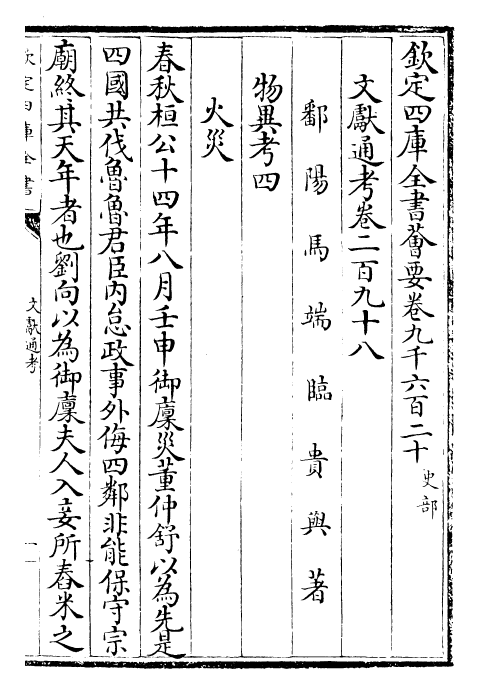 欽定四庫全書薈要卷九千六百二十 史部
文獻通考卷二百九十八
鄱陽馬端臨貴與著
物異考四
火災
春秋桓公十四年八月壬申御廩災董仲舒以為先是
四國共伐魯魯君臣內怠政事外侮四鄰非能保守宗
廟終其天年者也劉向以為御廩夫人入妾所舂米之
欽定四庫全書
文獻通考
一